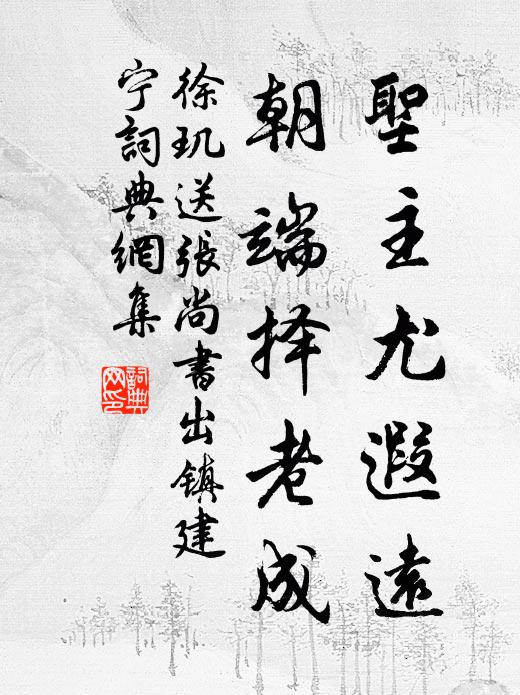 聖主尤遐遠
朝端择老成
徐玑送張尚書出鎮建
宁詞典網集
詞典網印